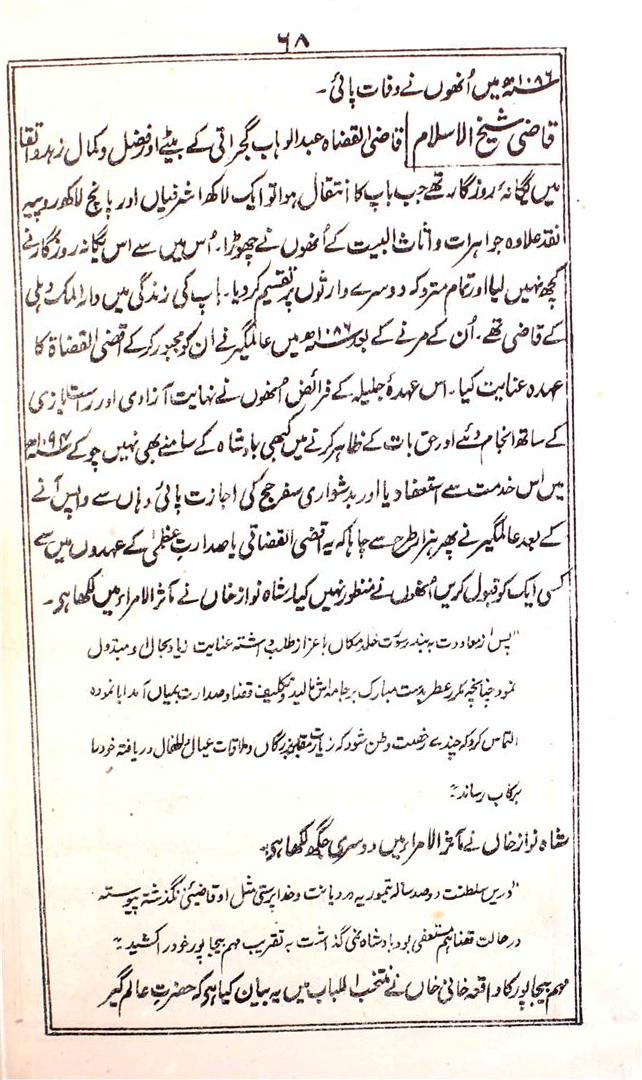 ۶۸
۱۰۸۶ھ میں اُنھوں نے وفات پائی۔
قاضی شیخ الاسلام قاضی القضاۃ عبدالوہاب گجراتی کے بیٹے اور فضل و کمال زہد و اتقا
میں یگانۂ روزگار تھے جب باپ کا انتقال ہوا تو ایک لاکھ اشرفیاں اور پانچ لاکھ روپیہ
نقد علاوہ جواہرات و اثاث البیت کے اُنھوں نے چھوڑا۔ اُس میں سے اس یگانہ روزگار نے
کچھ نہیں لیا اور تمام متروکہ دوسرے وارثوں پر تقسیم کر دیا۔ باپ کی زندگی میں دار الملک دہلی
کے قاضی تھے، اُن کے مرنے کے بعد ۱۰۸۶ھ میں عالمگیر نے ان کو مجبور کر کے اقضی القضاۃ کا
عہدہ عنایت کیا۔ اس عہدۂ جلیلہ کے فرائض اُنھوں نے نہایت آزادی اور راستبازی
کے ساتھ انجام دئیے اور حق بات کے ظاہر کرنے میں کبھی بادشاہ کے سامنے بھی نہیں چوکے ۱۰۹۴ھ
میں اس خدمت سے استعفا دیا اور بدشواری سفر حج کی اجازت پائی وہاں سے واپس آنے
کے بعد عالمگیر نے پھر ہزار طرح سے چاہا کہ یہ اقضی القضاتی یا صدارت عظمیٰ کے عہدوں میں سے
کسی ایک کو قبول کریں اُنھوں نے منظور نہیں کیا، شاہ نواز خاں نے مآثر الامراء میں لکھا ہی۔
"پس از معاودت بہ بندر سورت خلد مکاں با عزاز طلب داشتہ عنایت زیاد بحال او مبذول
نمود چنانچہ مکرر عطر بدست مبارک بر جامہ اش مالید و تکلیف قضا و صدارت بمیاں آمد ابا نمودہ
التماس کرد کہ چندے رخصت وطن شود کہ زیارت مقابر بزرگاں و ملاقات عیال و اطفال دریافتہ خود را
برکاب رساند"
شاہ نواز خاں نے مآثر الامراء میں دوسری جگہ لکھا ہی۔
"دریں سلطنت دو صد سالہ تیموریہ مرد بدیانت و خدا پرستی مثل او قاضیئی نگذشتہ پیوستہ
در حالت قضا ہم مستعفی بود بادشاہ نمی گذاشت بہ تقریب مہم بیجاپور خود را کشید"
مہم بیجاپور کا واقعہ خافی خاں نے منتخب اللباب میں یہ بیان کیا ہو کہ حضرت عالم گیر